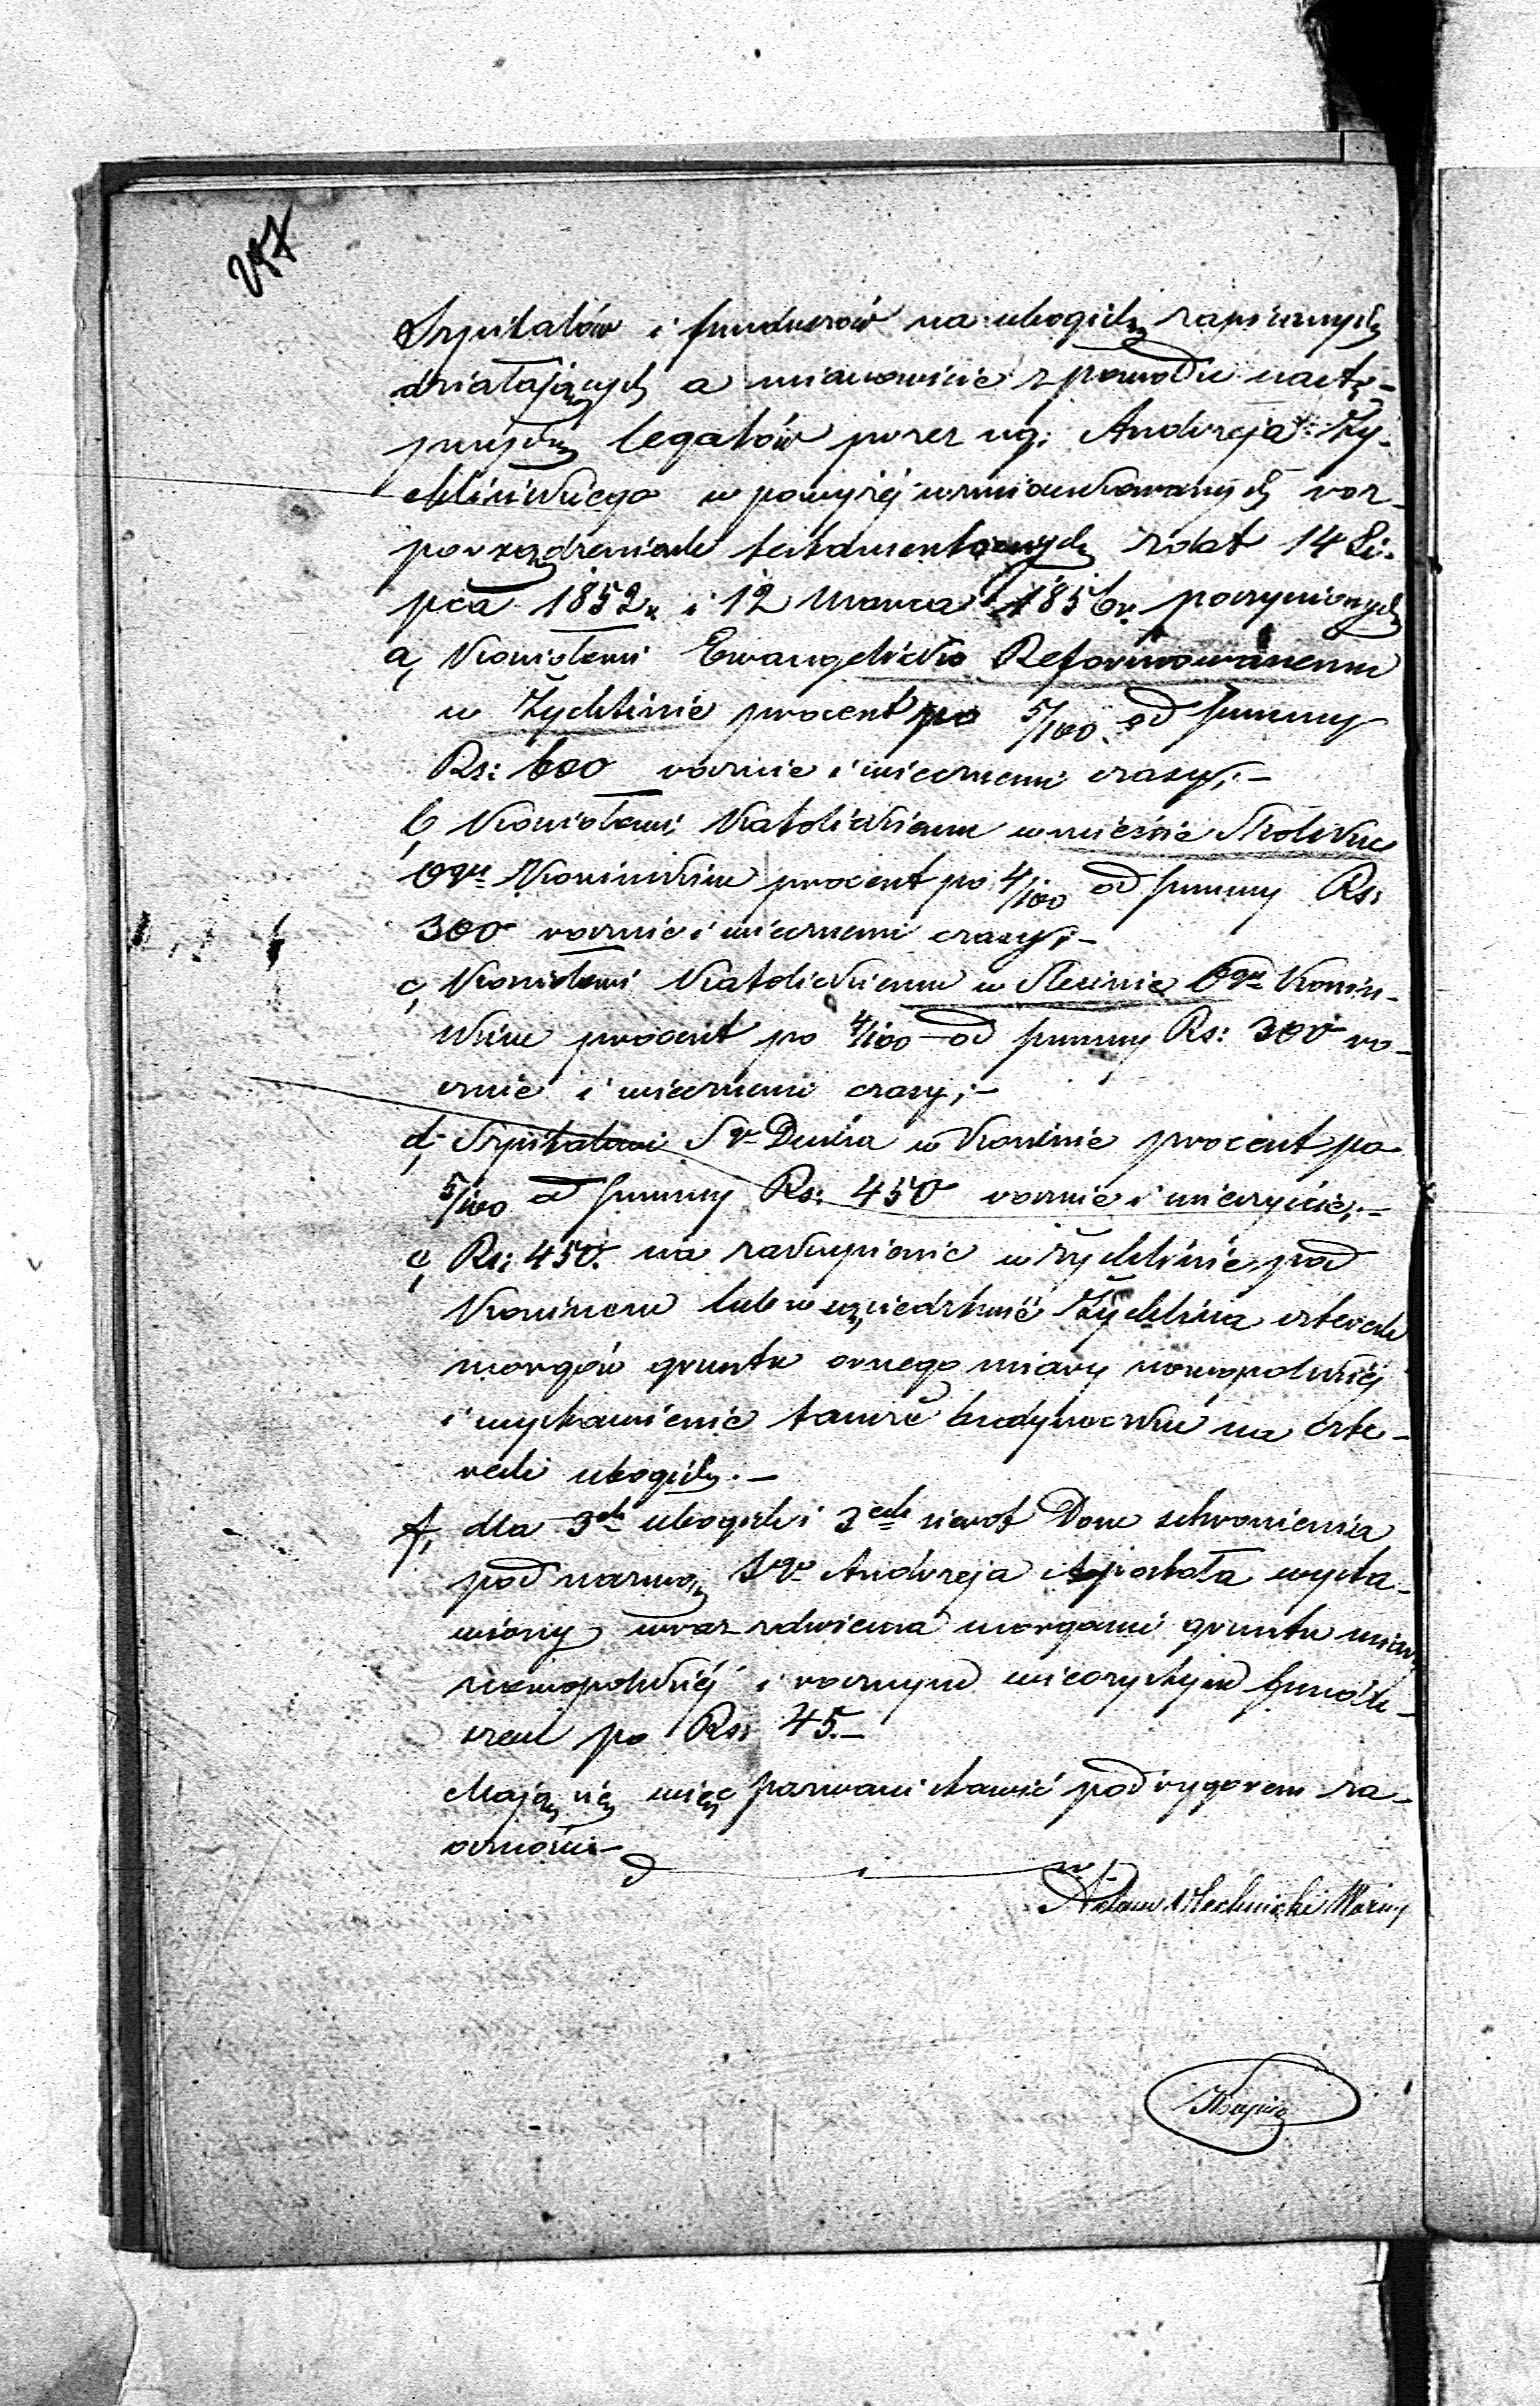 Szpitalów i funduszów na ubogich zapisanych
działających a mianowicie z powodu nastę-
pnych legatów przez ngi Andrzeja Ży-
chlińskiego w powyżéj wzmiankowanych roz-
porządzeniach testamentowych z dat 14 Li-
pca 1852 r. i 12 Marca 1856 r. poczynionych
a, Kościołowi Ewangelicko Reformowanemu
w Żychlinie procent po 5/100 od summy
Rs: 600 rocznie i wiecznemi czasy;-
b, Kościołowi Katolickiemu w mieście
Ogu Konińskim procent po 4/100 od summy Rs:
300 rocznie i wiecznemi czasy;-
c, Kościołowi Katolickiemu w Sławinie Ogu Koniń-
skim procent po 4/100 od summy Rs: 300 ro-
cznie i wiecznemi czasy;-
d, Szpitalowi Sgo Ducha w Koninie procent po
5/100 od summy Rs: 450 rocznie i wieczyście;-
e, Rs: 450. na zakupienie w Żychlinie pod
Koninem lub w sąsiedztwie Żychlina czterech
morgów gruntu ornego miary nowopolskiéj
i wystawienie tamże budynoczku na czte-
rech ubogich.-
f, dla 3ch ubogich i 3ech sierot Dom schronienia
pod nazwą Sgo Andrzeja Apostoła wysta-
wiony wraz z dwiema morgami gruntu miary
nowopolskiéj i rocznym wieczystym fundu-
szem po Rs: 45.-
Mają się więc pozwani stawić pod rygorem za-
oczności-
Adam
Kopia